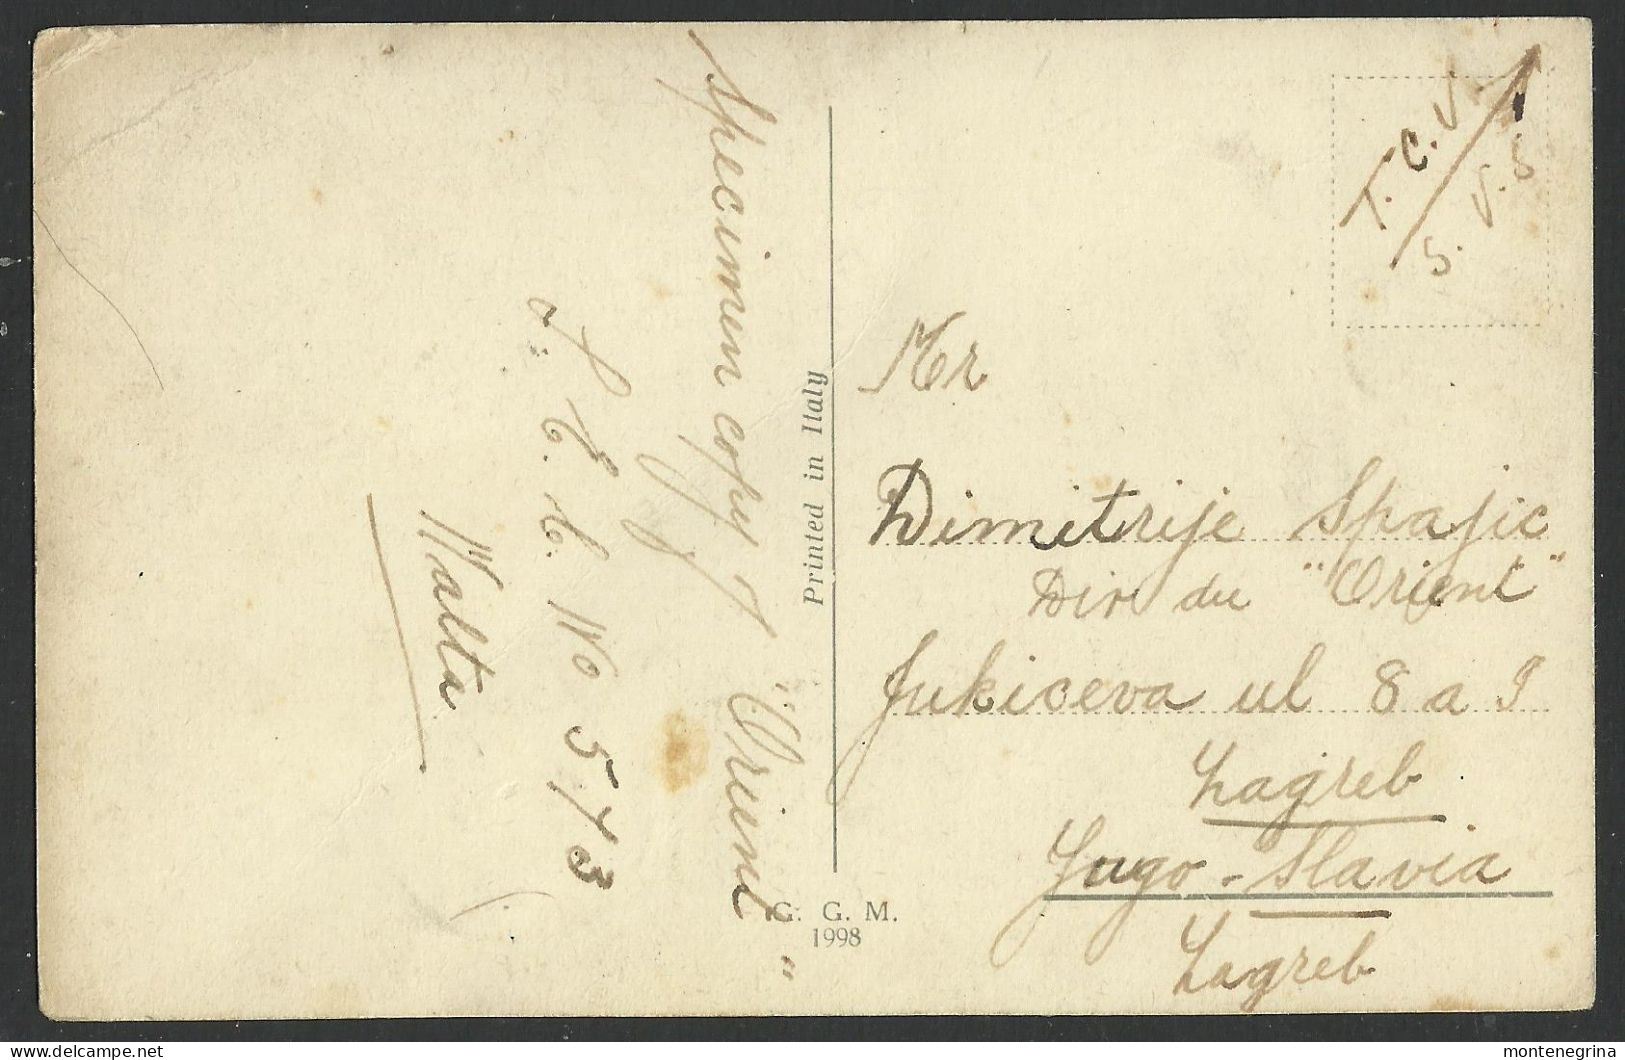 Specimen copy of "Orient"
E. C. No 573
Malta
Printed in Italy
G. G. M.
1998
T. C. V.
S. V. S
Mr
Dimitrije Spajic
Dir du "Orient"
Jukiceva ul 8 a I
Zagreb
Jugo-Slavia
Zagreb
montenegrina